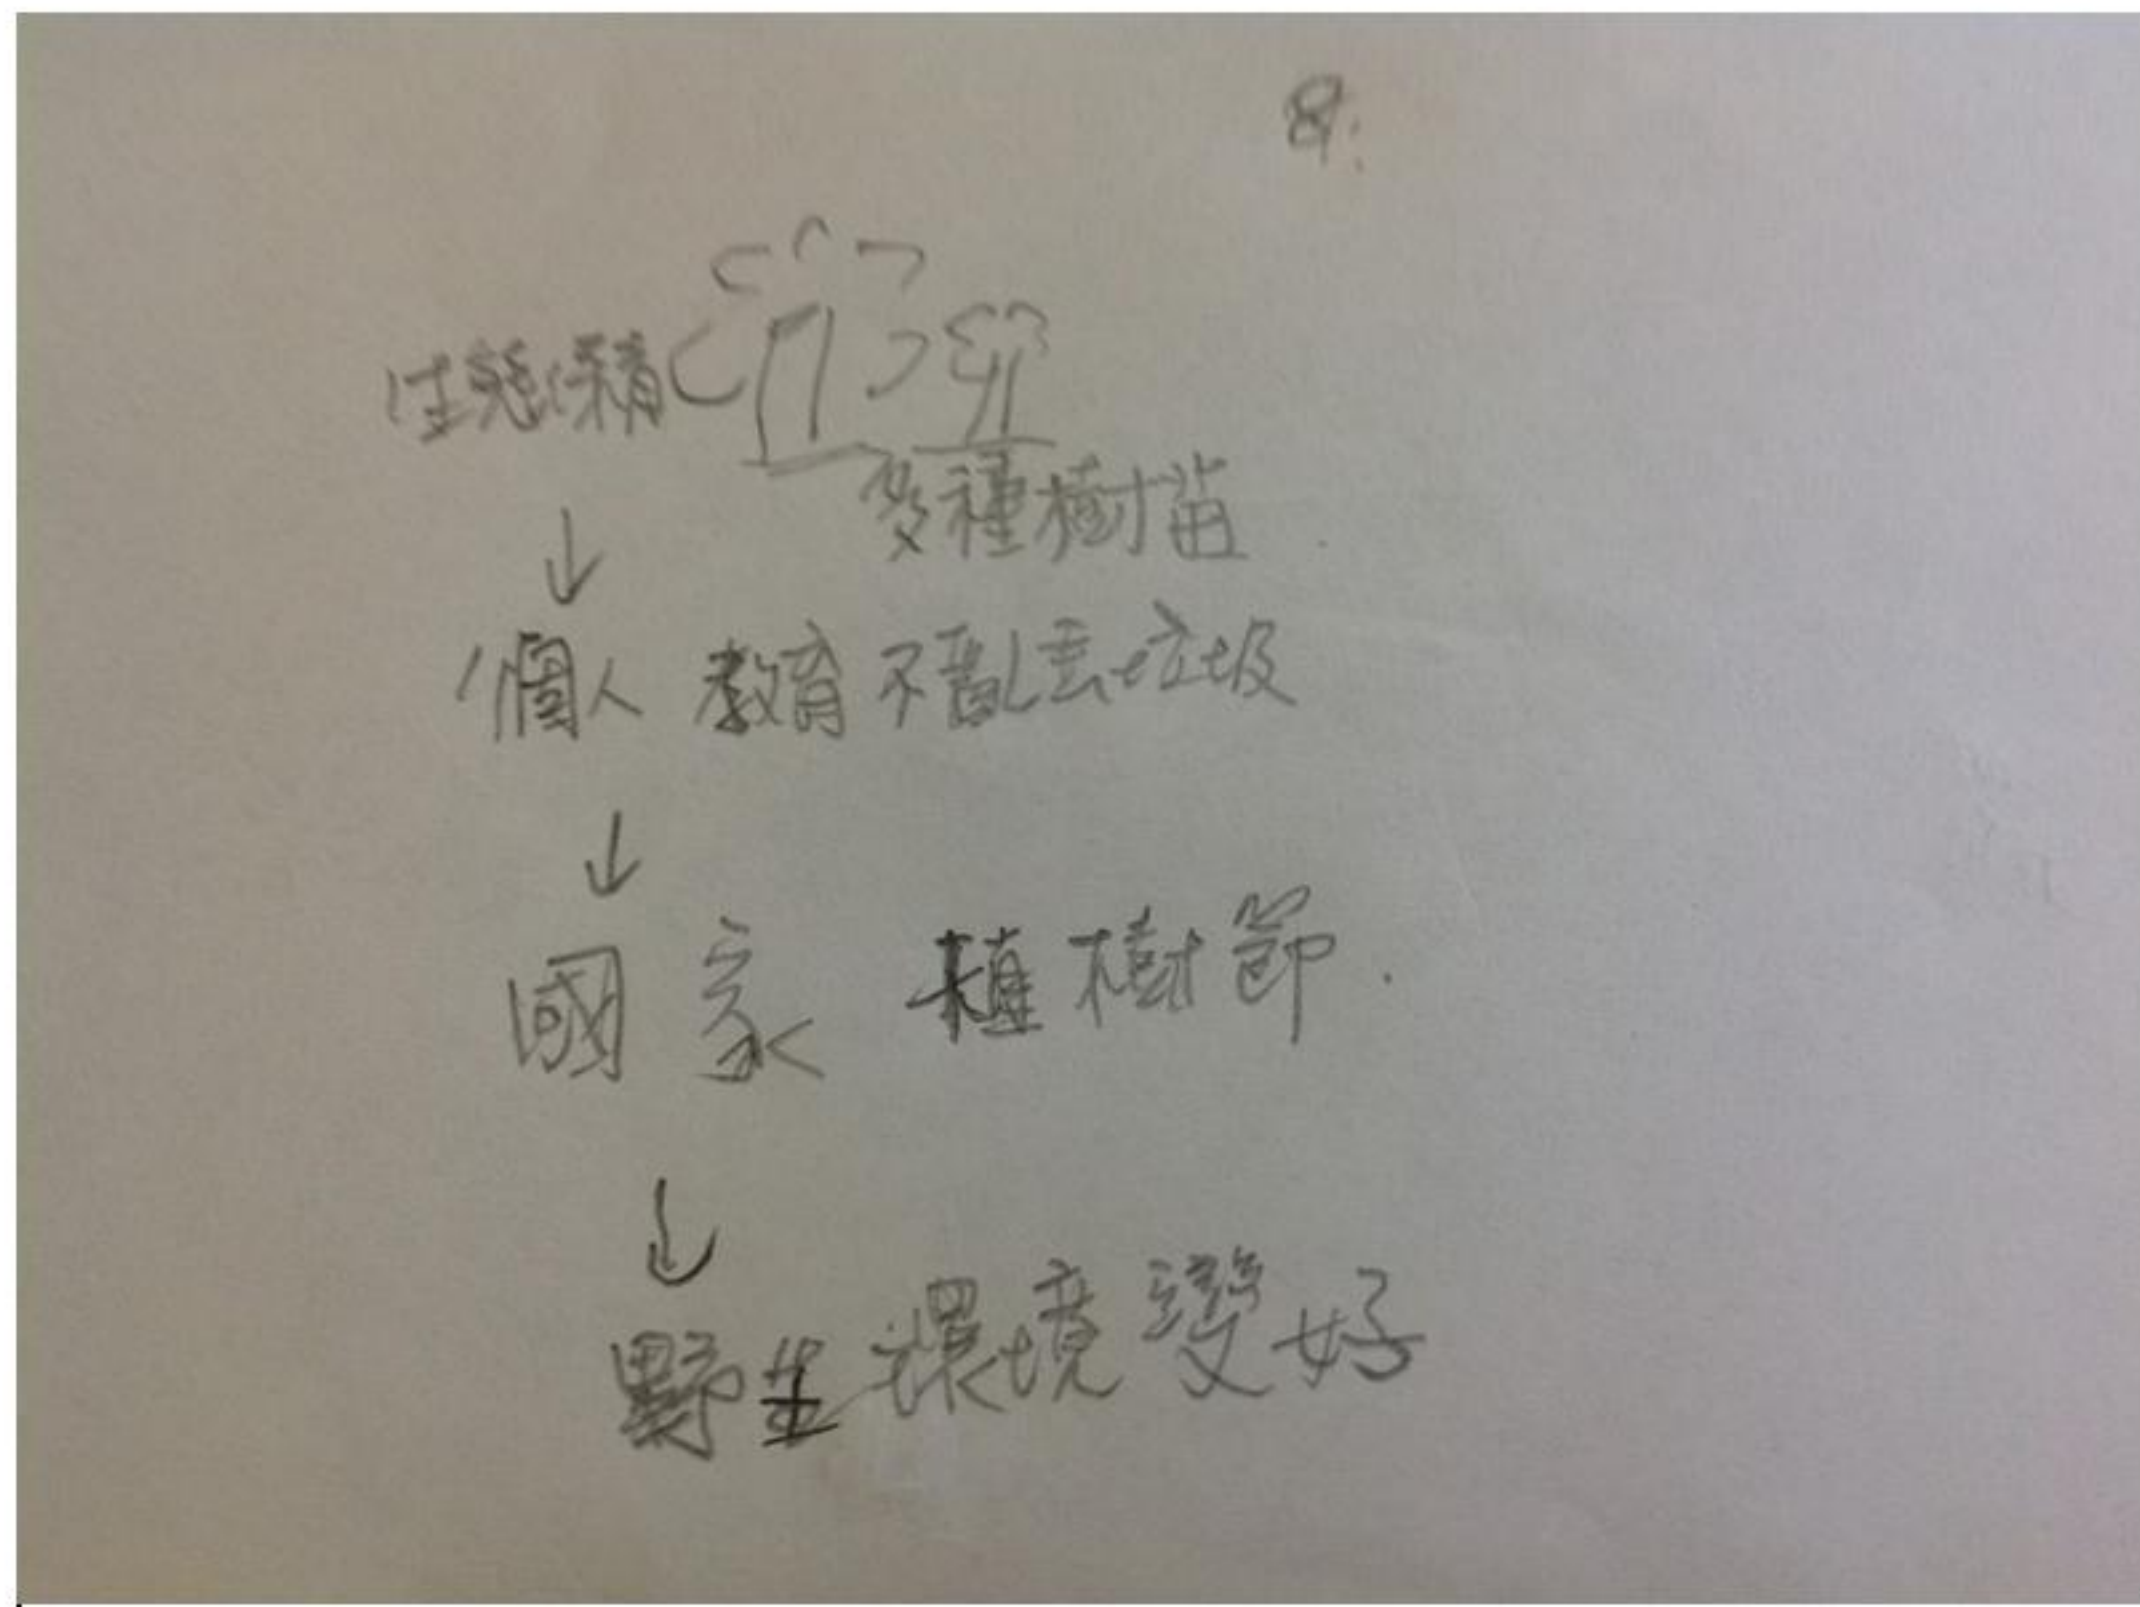 8.
生態保育
多種樹苗
個人 教育不亂丟垃圾
國家 植樹節.
野生環境變好